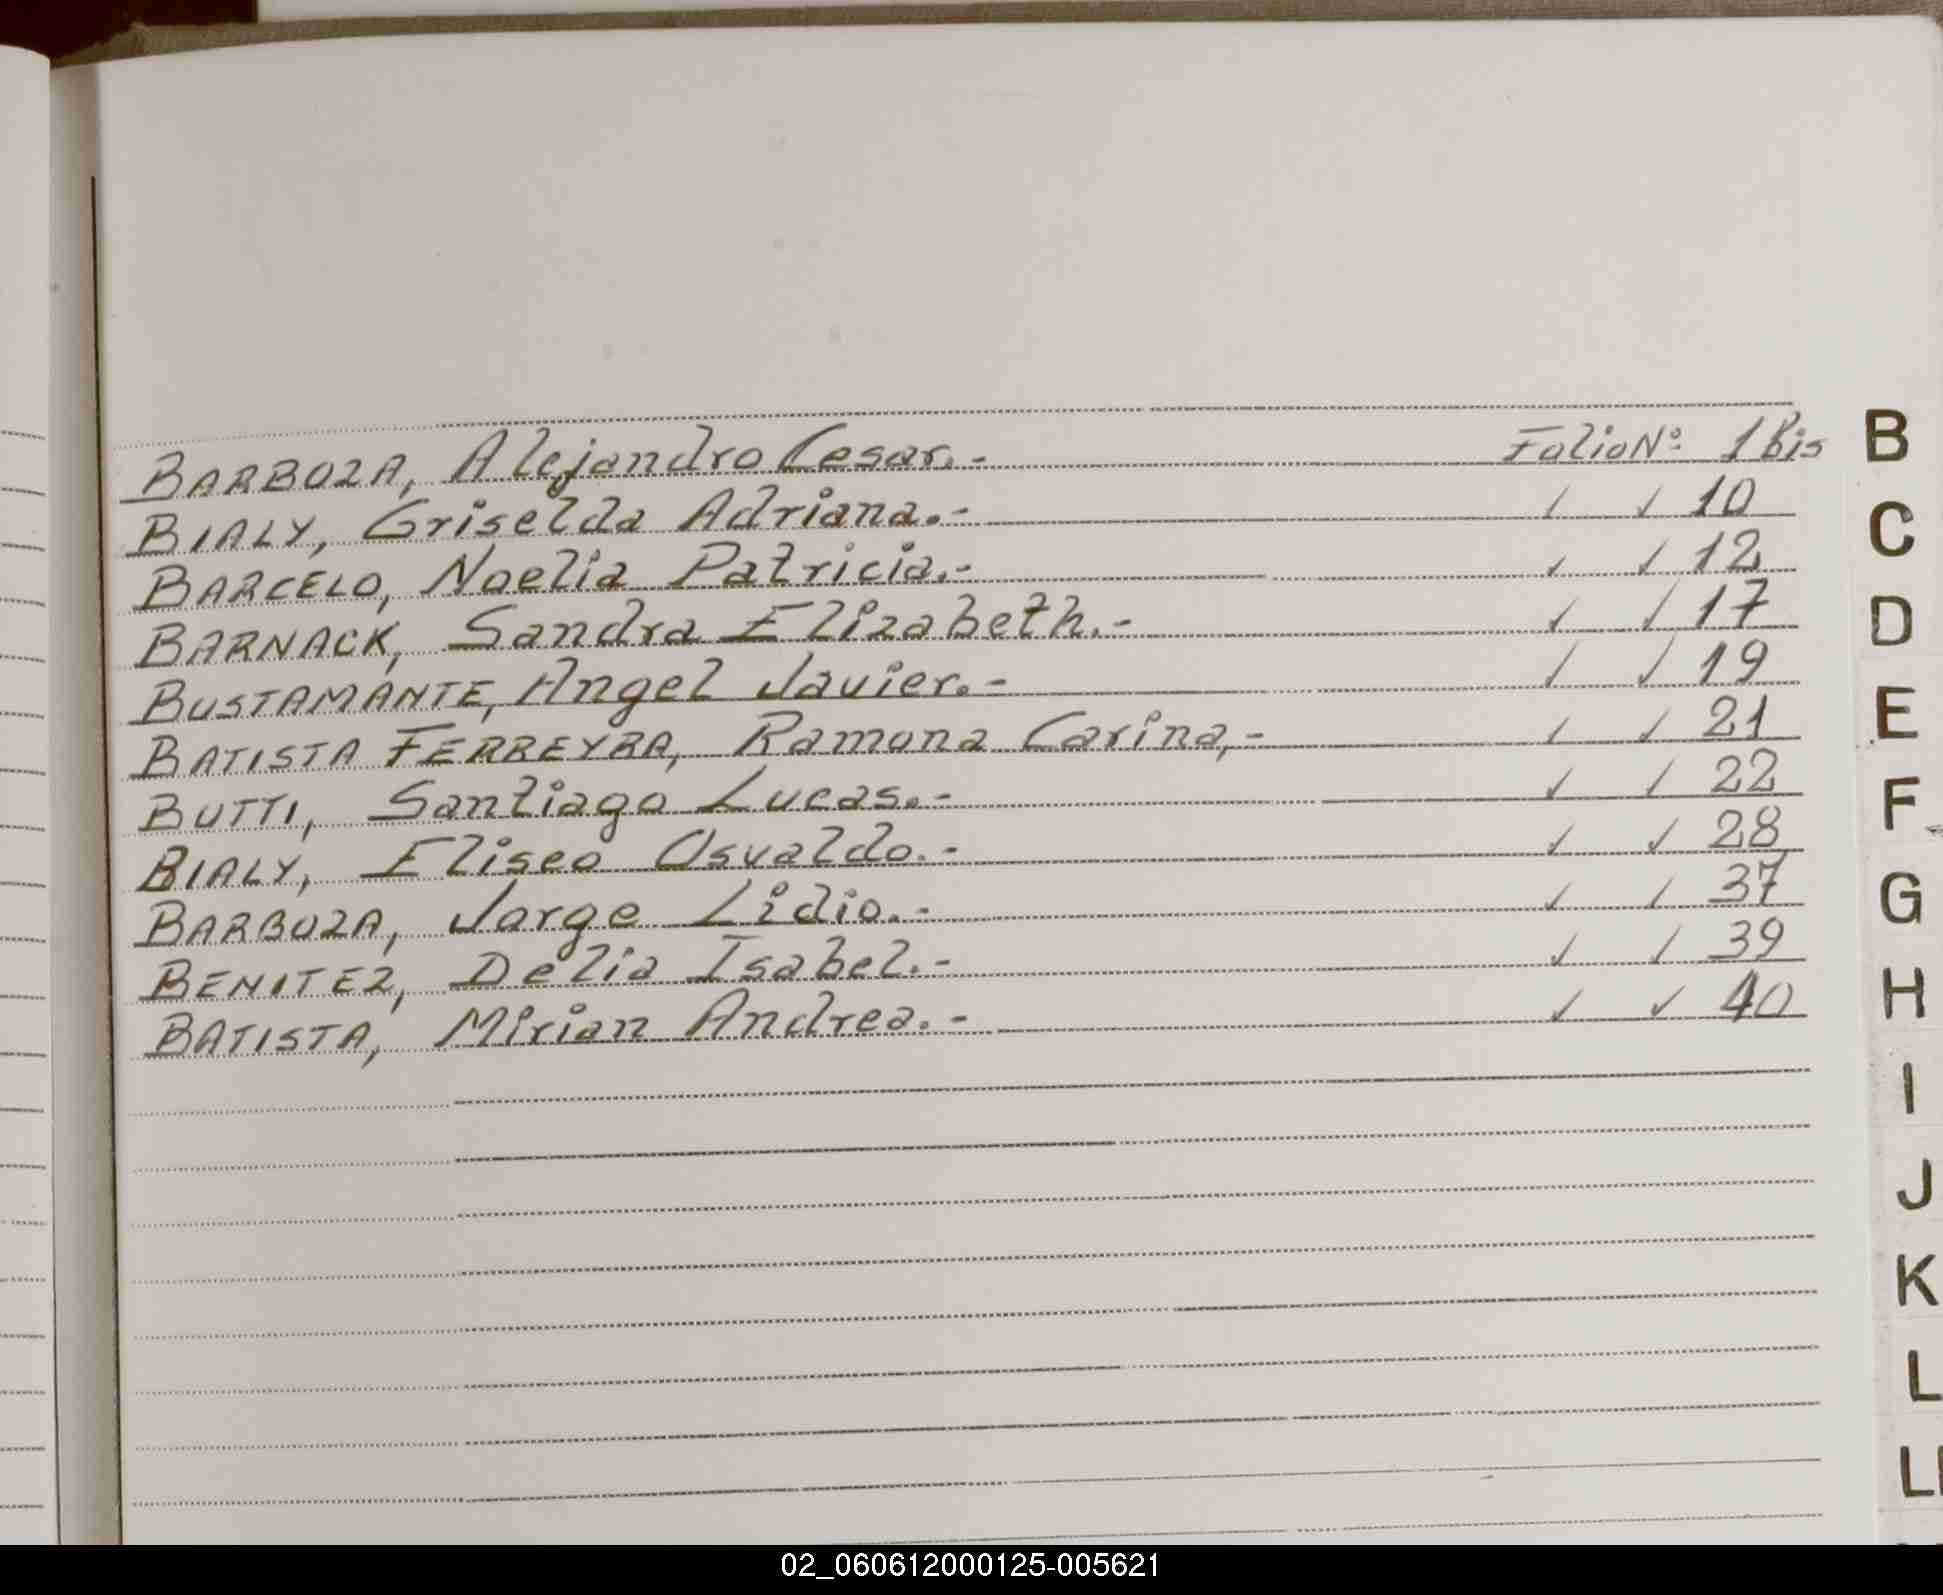 BARBOZA, Alejandro Cesar.- Folio Nº 1 Bis
BIALY, Griselda Adriana.- ✓ ✓ 10
BARCELO, Noelia Patricia.- ✓ ✓ 12
BARNACK, Sandra Elizabeth.- ✓ ✓ 17
BUSTAMANTE, Angel Javier.- ✓ ✓ 19
BATISTA FERREYRA, Ramona Carina,- ✓ ✓ 21
BUTTI, Santiago Lucas.- ✓ ✓ 22
BIALY, Eliseo Osvaldo.- ✓ ✓ 28
BARBOZA, Jorge Lidio.- ✓ ✓ 37
BENITEZ, Delia Isabel.- ✓ ✓ 39
BATISTA, Mirian Andrea.- ✓ ✓ 40
B
C
D
E
F
G
H
I
J
K
L
02_060612000125-005621